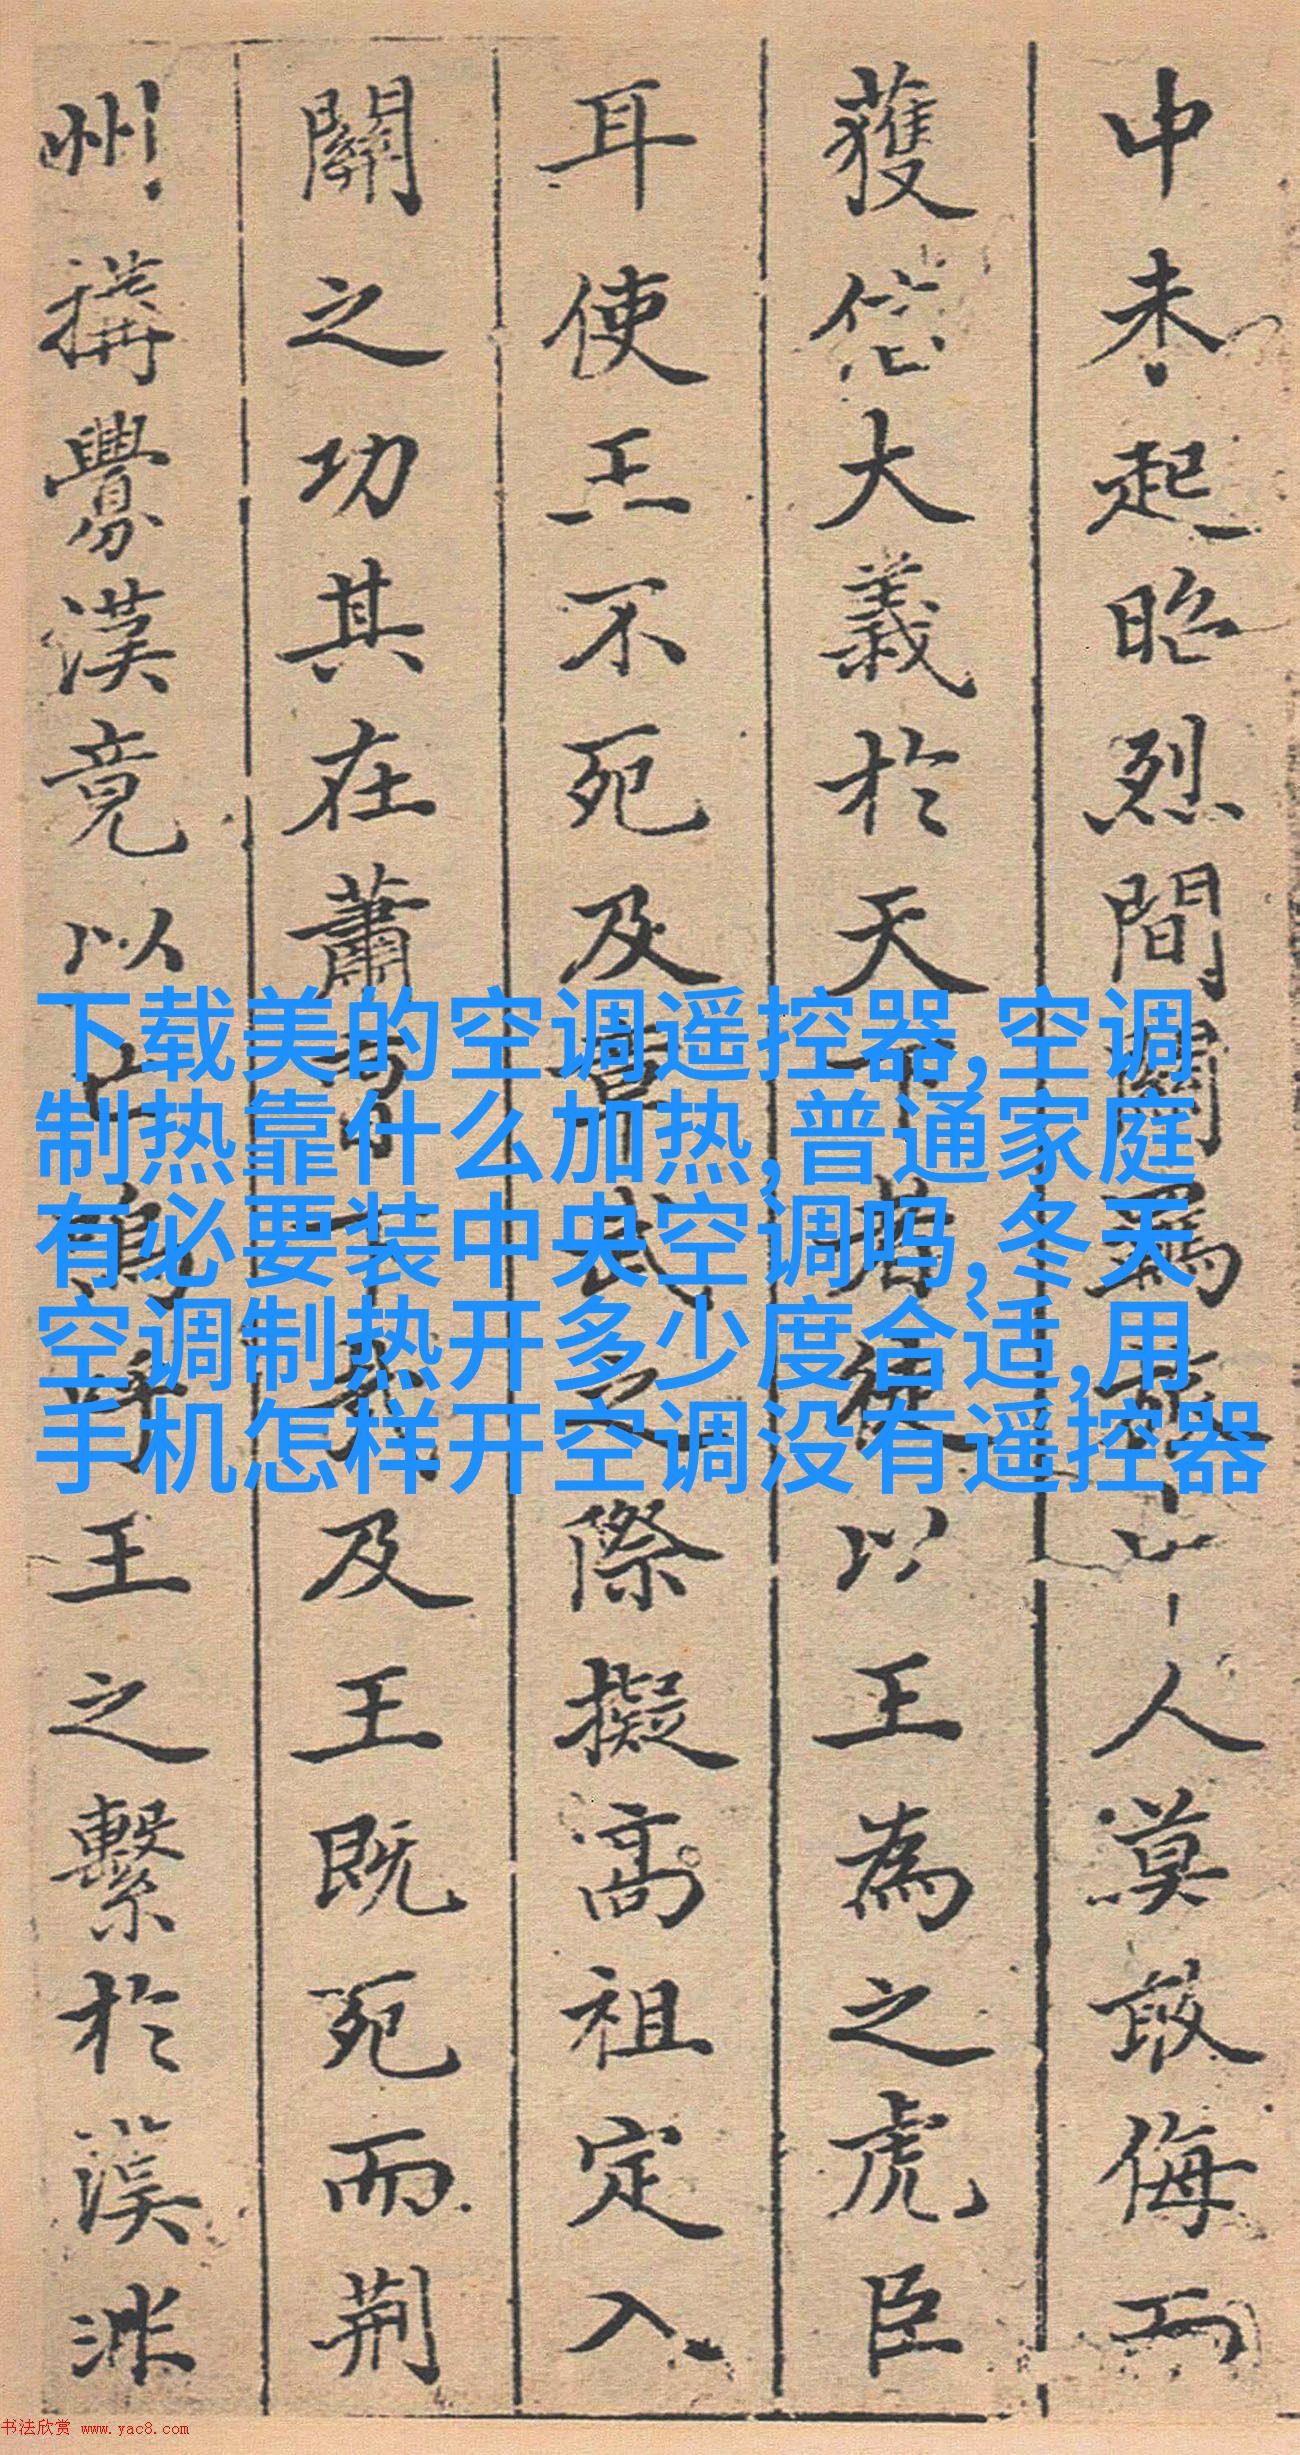 中未起昭烈間關羈
人莫敢侮而
獲信大義於天下者徒以王為之虎臣
耳使王不死及章武之際擬高祖定入
關之功其在蕭曹下哉及王既死而荊
州搆釁漢竟以亡嗚呼王之繫於漢非
下载美的空调遥控器,空调
制热靠什么加热,普通家庭
有必要装中央空调吗,冬天
空调制热开多少度合适,用
手机怎样开空调没有遥控器
书法欣赏 www.yac8.com